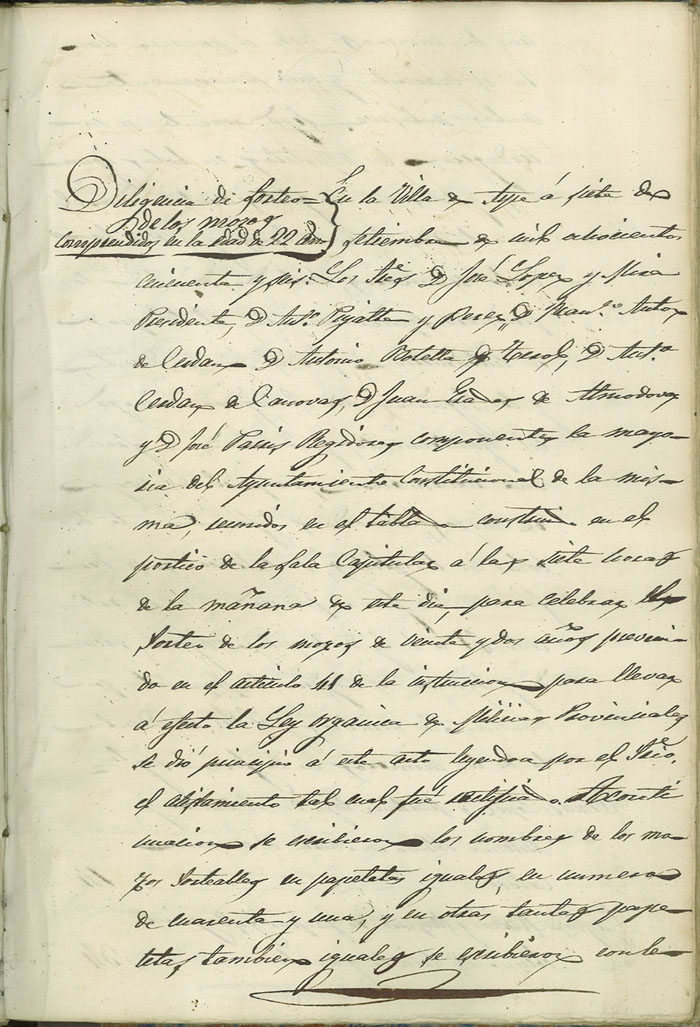 Diligencia de sorteo = En la Villa de Aspe á siete de
de los mozos
comprendidos en la edad de 22 años setiembre de mil ochocientos
cincuenta y seis: Los Sres D. José Lopez y Mira
Presidente, D. Antº. Pujalte y Perez, D. Manl.º Autor
de Cerdan D. Antonio Botella y Terol, D. Antº.
Cerdan de Canovas, D. Juan de Almodovar
y D. José Regidores componentes la mayo-
ria del Ayuntamiento Constitucional de la mis-
ma, reunidos en el tablado construido en el
portico de la Sala Capitular á las siete horas
de la mañana de este dia, para celebrar el
Sorteo de los mozos de veinte y dos años preveni-
do en el articulo 41 de la instruccion para llevar
á efecto la Ley organica de Milicias Provinciales
se dió principio á este acto leyendose por el Srio.
el alistamiento tal cual fué rectificado. Aconti
nuacion se escribieron los nombres de los mo-
zos sorteables en papeletas iguales, en numero
de cuarenta y una, y en otras tantas pape-
letas tambien iguales se escribieron con le-